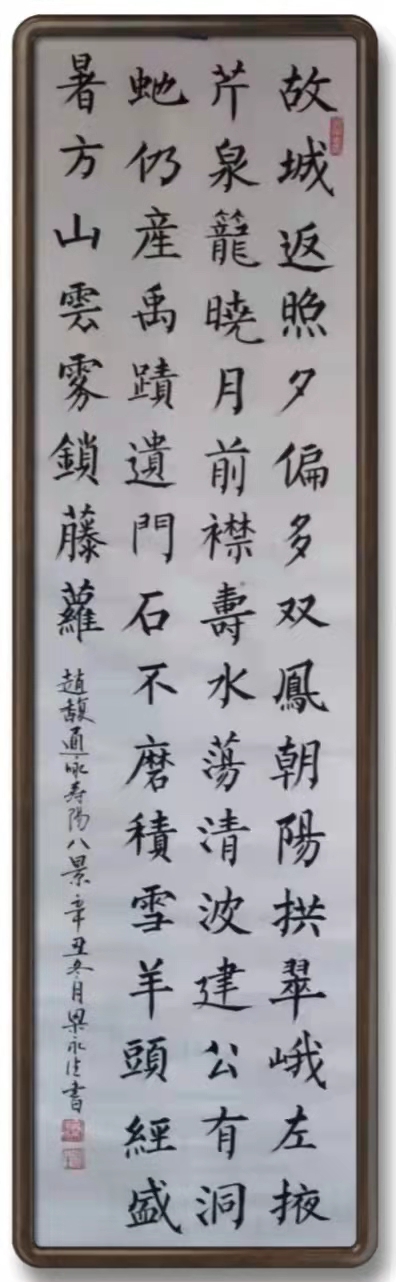 故城返照夕偏多双鳳朝陽拱翠峨左掖
芹泉籠曉月前襟壽水蕩清波建公有洞
虵仍産禹蹟遺門石不磨積雪羊頭經盛
暑方山雲雾鎖藤蘿
趙馥通咏寿陽八景辛丑冬月梁永佳書